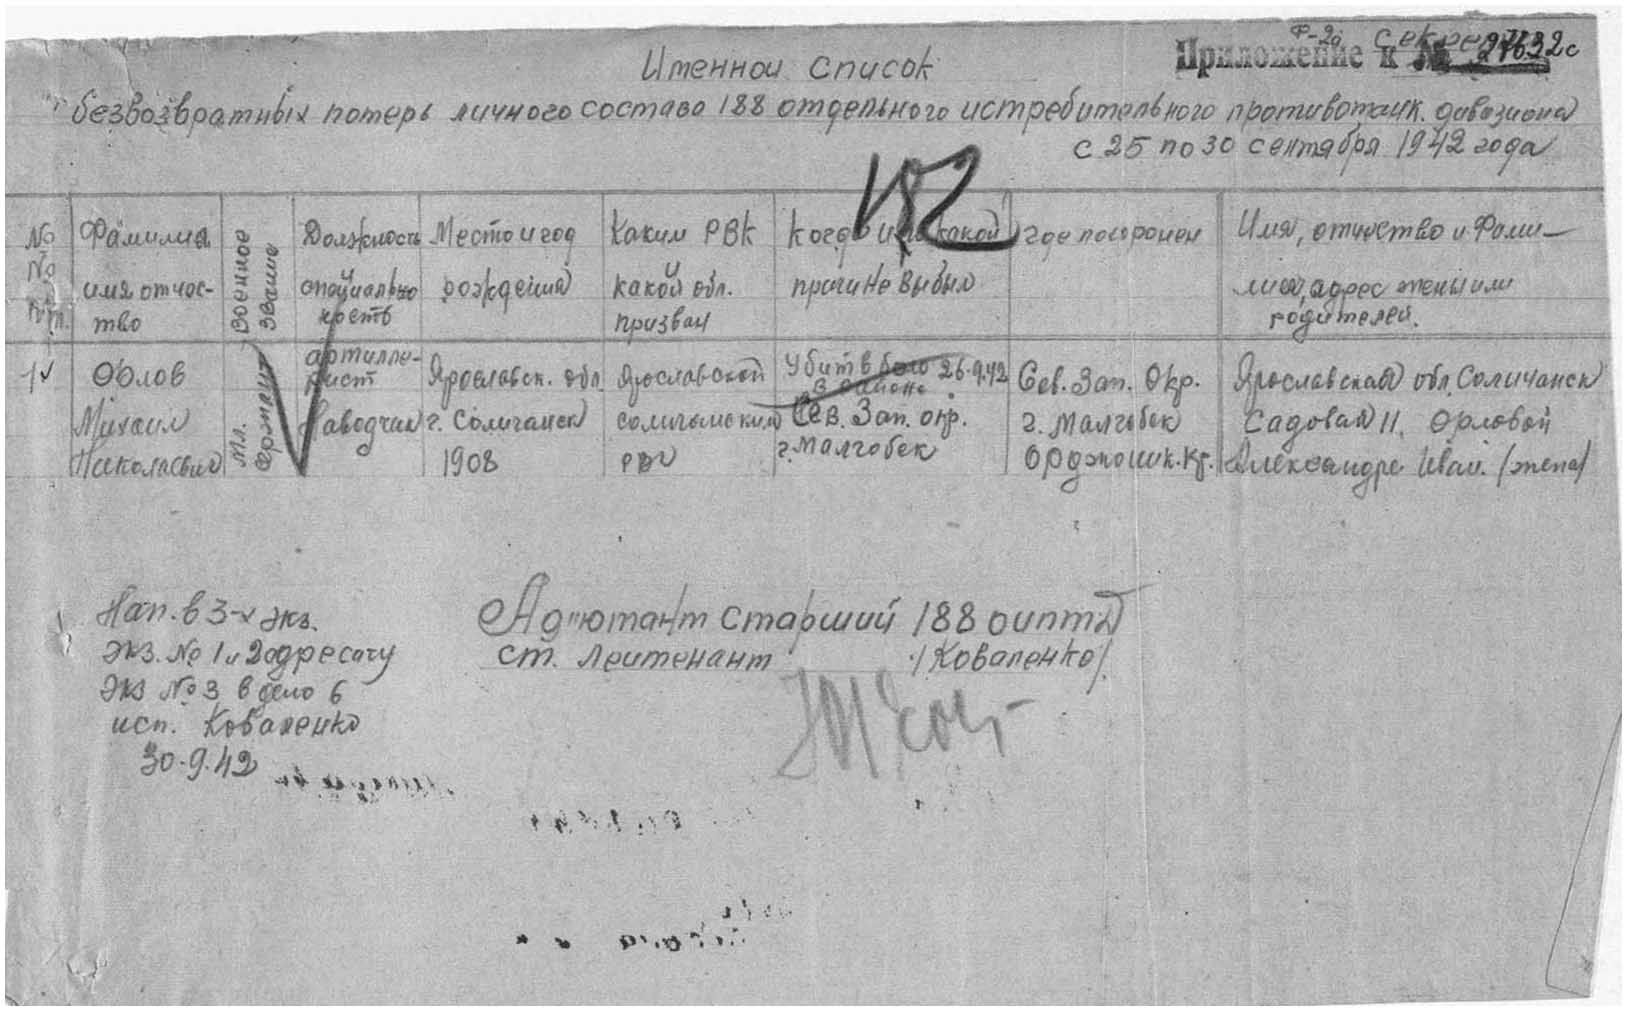 Ф-2а Секретно
Приложение к № 27632с
Именной список
безвозвратных потерь личного состава 188 отдельного истребительного противотанк. дивизиона
с 25 по 30 сентября 1942 года
182
№ № п/п.
Фамилия
имя отчес-
тво
Военное
звание
Должность
специально
ность
Место и год
рождения
Каким РВК
какой обл.
призван
Когда и по какой
причине выбыл
где похоронен
Имя, отчество и Фами-
лия, адрес жены или
родителей.
1
Орлов
Михаил
Николаевич
Мл.
сержант
артилле-
рист
Наводчик
Ярославск. обл
г. Солигалич
1908
Ярославской
РВК
Убит в бою 26.9.42
в районе
Сев. Зап. окр.
г. Малгобек
Сев. Зап. Окр.
г. Малгобек
Орджоник. кр.
Ярославская обл. 
Садовая 11. Орловой
Александре Иван. (жена)
Нап. в 3-х экз.
Экз. № 1 и 2 адресату
Экз № 3 в дело 6
исп. Коваленко
30.9.42
Адъютант старший 188 оиптд
ст. лейтенант /Коваленко/